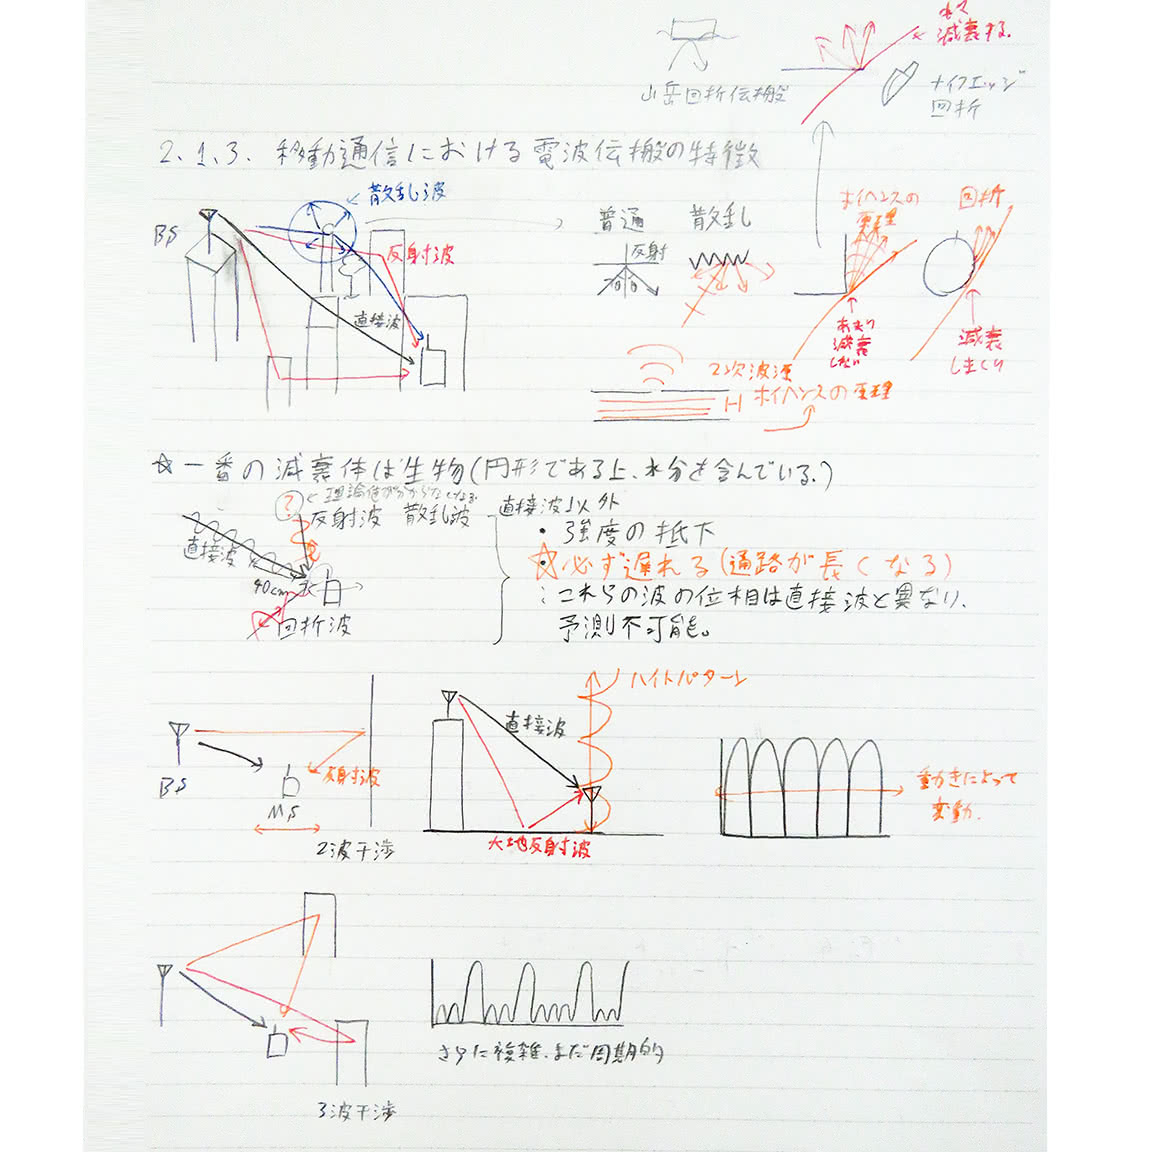 減衰する.
山岳回折伝搬
ナイフエッジ
回折
2.1.3. 移動通信における電波伝搬の特徴
散乱波
BS
反射波
直接波
普通
反射
散乱
ホイヘンスの
原理
回折
あまり
減衰
しない
減衰
しまくり
2次波源
ホイヘンスの原理
☆一番の減衰体は生物(円形である上、水分を含んでいる。)
?
理論値が分からなくなる
反射波 散乱波
直接波
40cm
回折波
直接波以外
・強度の抵下
☆必ず遅れる(通路が長くなる)
:これらの波の位相は直接波と異なり、
予測不可能。
BS
反射波
MS
2波干渉
直接波
大地反射波
ハイトパターン
動きによって
変動.
さらに複雑、まだ周期的
3波干渉